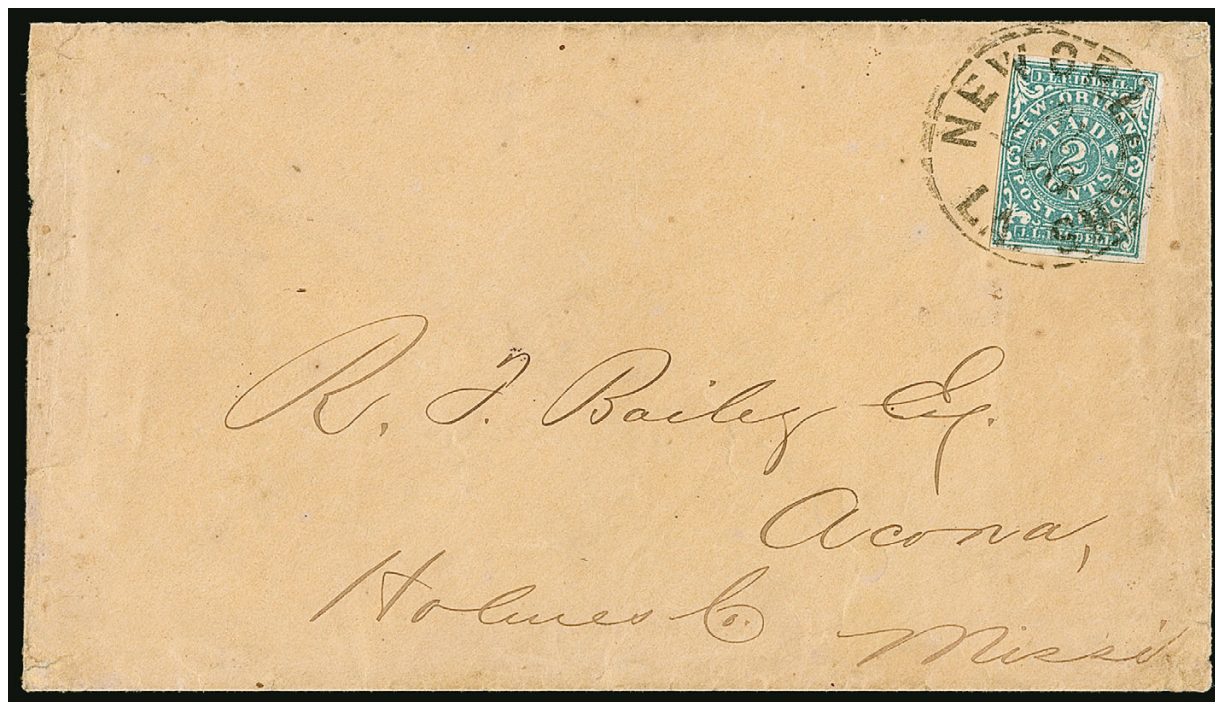 NEW ORL
LA
J. L. RIDDELL
NEW-ORLEANS
PAID
2
CENTS
POST OFFICE
J. L. RIDDELL
R. T. Bailey Esq.
Acona,
Holmes Co.
Missi